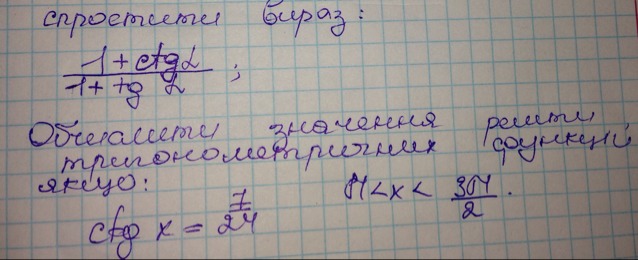 спростити вираз:
1 + ctg α / 1 + tg α ;
Обчислити значення решти
тригонометричних функцій,
якщо:
ctg x = 7/24    π < x < 3π/2.